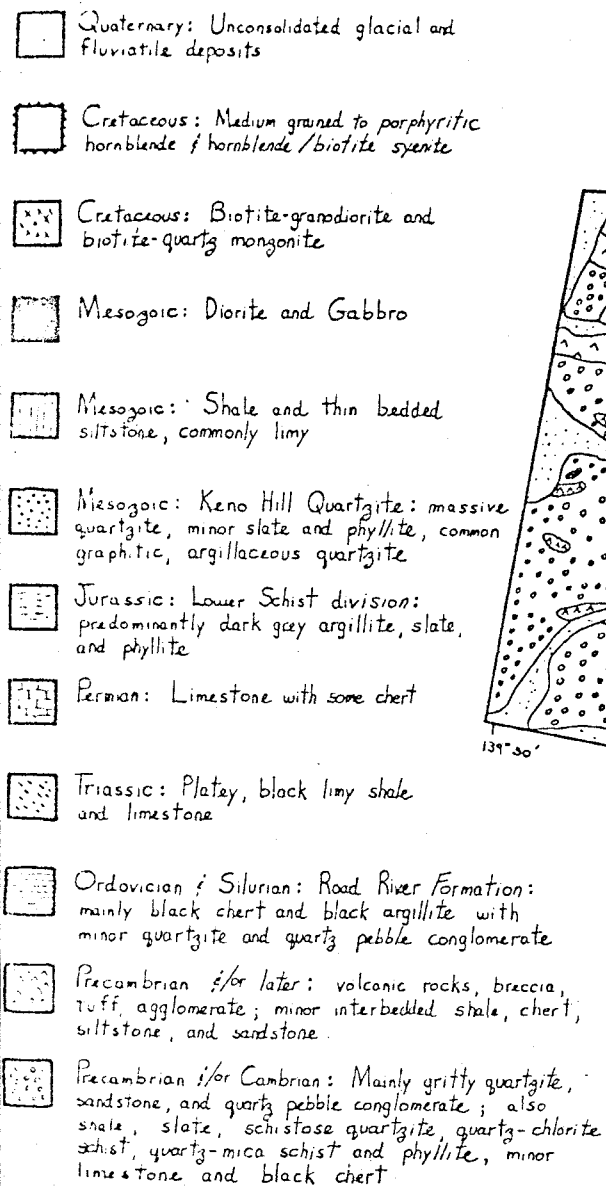 Quaternary: Unconsolidated glacial and
fluviatile deposits
Cretaceous: Medium grained to porphyritic
hornblende & hornblende/biotite syenite
Cretaceous: Biotite-granodiorite and
biotite-quartz monzonite
Mesozoic: Diorite and Gabbro
Mesozoic: Shale and thin bedded
siltstone, commonly limy
Mesozoic: Keno Hill Quartzite: massive
quartzite, minor slate and phyllite, common
graphitic, argillaceous quartzite
Jurassic: Lower Schist division:
predominantly dark grey argillite, slate,
and phyllite
Permian: Limestone with some chert
139°30'
Triassic: Platey, black limy shale
and limestone
Ordovician & Silurian: Road River Formation:
mainly black chert and black argillite with
minor quartzite and quartz pebble conglomerate
Precambrian &/or later: volcanic rocks, breccia,
tuff, agglomerate; minor interbedded shale, chert,
siltstone, and sandstone.
Precambrian &/or Cambrian: Mainly gritty quartzite,
sandstone, and quartz pebble conglomerate; also
shale, slate, schistose quartzite, quartz-chlorite
schist, quartz-mica schist and phyllite, minor
limestone and black chert